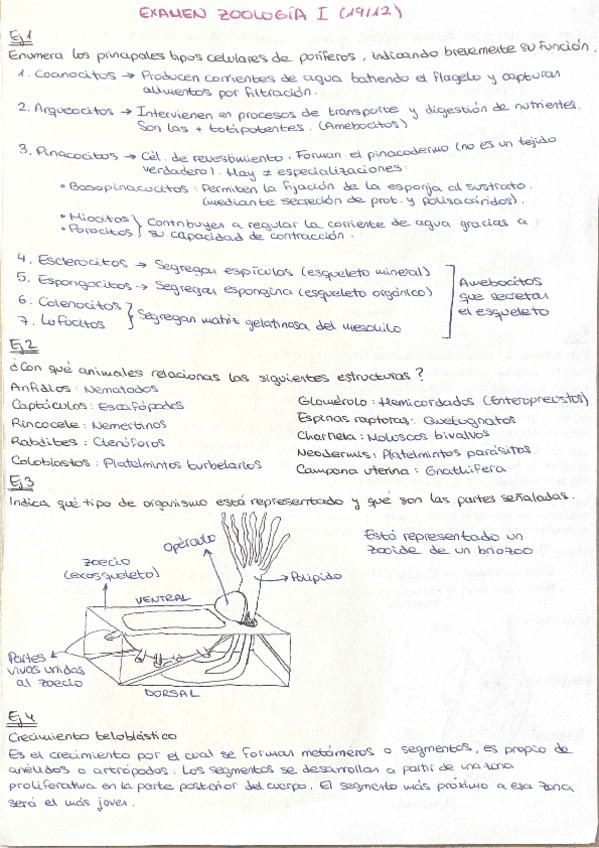 EXAMEN ZOOLOGÍA I (19/12)
Ej1
Enumera los principales tipos celulares de poríferos, indicando brevemente su función.
1. Coanocitos → Producen corrientes de agua batiendo el flagelo y capturan
alimentos por filtración.
2. Arqueocitos → Intervienen en procesos de transporte y digestión de nutrientes.
Son las + totipotentes. (Amebocitos)
3. Pinacocitos → Cél. de revestimiento. Forman el pinacodermo (no es un tejido
verdadero). Hay ≠ especializaciones:
• Basopinacocitos: Permiten la fijación de la esponja al sustrato.
(mediante secreción de prot. y polisacáridos).
• Miocitos } Contribuyen a regular la corriente de agua gracias a
• Porocitos } su capacidad de contracción.
4. Esclerocitos → Segregan espículas (esqueleto mineral)
5. Espongocitos → Segregan espongina (esqueleto orgánico)
6. Colenocitos } Segregan matriz gelatinosa del mesohilo
7. Lofocitos
Amebocitos
que secretan
el esqueleto
Ej2
¿Con qué animales relacionas las siguientes estructuras?
Anfidios: Nematodos
Captáculos: Escafópodos
Rincocele: Nemertinos
Rabdites: Ctenóforos
Coloblastos: Platelmintos turbelarios
Glomérolo: Hemicordados (Enteropneustos)
Espinas raptoras: Quetognatos
Charnela: Moloscos bivalvos
Neodermis: Platelmintos parásitos
Campana uterina: Gnathifera
Ej3
Indica qué tipo de organismo está representado y qué son las partes señaladas.
Opérculo
zoecio
(exosqueleto)
VENTRAL
Polípido
Está representado un
zooide de un briozoo
Partes
vivas unidas
al zoecio
DORSAL
Ej4
Crecimiento teloblástico
Es el crecimiento por el cual se forman metámeros o segmentos, es propio de
anélidos o artrópodos. Los segmentos se desarrollan a partir de una zona
proliferativa en la parte posterior del cuerpo. El segmento más próximo a esa zona
será el más joven.